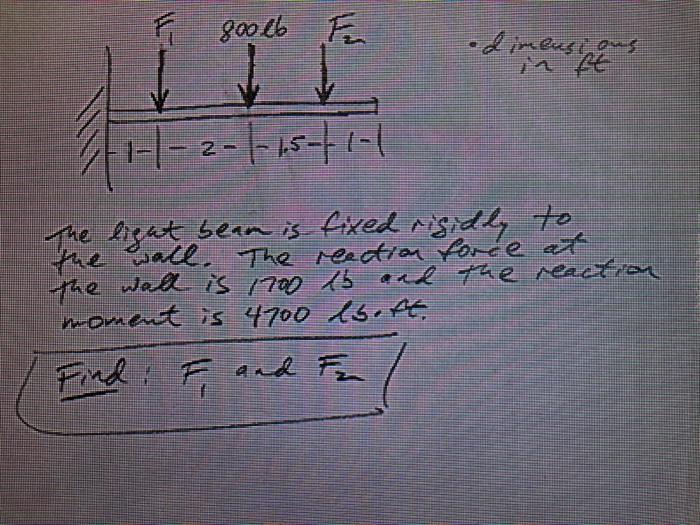 F₁ 800 lb F₂
• dimensions
in ft
1 - | - 2 - | - 1.5 - | 1 - |
The light beam is fixed rigidly to
the wall. The reaction force at
the wall is 1700 lb and the reaction
moment is 4700 lb·ft.
Find: F₁ and F₂